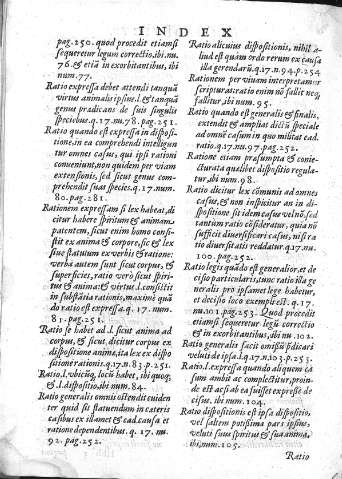 INDEX
pag.250. quod procedit etiamsi
sequeretur legum correctio.ibi.nu.
76.& etiā in exorbitantibus, ibi
num.77.
Ratio expressa debet attendi tanquā
virtus animalis ipsius l.& tanquā
genus praedicans de suis singulis
speciebus q.17.nu.78.pag.251.
Ratio quando est expressa in disposi-
tione, in ea comprehendi intelligun
tur omnes casus, qui ipsi rationi
conueniunt, non quidem per viam
extensionis, sed sicut genus com-
prehendit suas species.q.17.num.
80.pag.281.
Rationem expressam si lex habeat, di
citur habere spiritum & animam
patentem, sicut enim homo consi-
stit ex anima & corpore, sic & lex
siue statutum ex verbis & ratione:
verba autem sunt sicut corpus, &
superficies, ratio vero sicut spiri-
tus & anima:& virtus l.consistit
in substātia rationis, maximè quā
do ratio est expressa.q. 17. num.
81.pag.251.
Ratio se habet ad l. sicut anima ad
corpus, & sicut dicitur corpus ex
dispositione animæ, ita lex ex dispo
sitione rationis.q.17.n.83.p.251.
Ratio.l.vbicūq; locū habet, ibi quoq;
& l.dispositio, ibi num.84.
Ratio generalis omnis ostendit euiden
ter quid sit statuendum in cæteris
casibus ex illamet & ead.causa et
ratione dependentibus. q. 17. nu.
92. pag.252.
Ratio alicuius dispositionis, nihil a-
liud est quam ordo rerum ex causa
illa gerendarū.q.17.n.94.p.254
Rationem per viuam interpretamur
scripturas: ratio enim nō fallit nec
fallitur, ibi num.95.
Ratio quando est generalis & finalis,
extendit & ampliat dictū speciale
ad omnē casum in quo militat ead.
ratio.q.17.nu.97.pag.252.
Ratione etiam præsumpta & conie-
cturata quælibet dispositio regula-
tur, ibi num.98.
Ratio dicitur lex cōmunis ad omnes
casus, & non inspicitur an in di-
spositione sit idem casus vel nō, sed
tantum ratio cōsideratur, quia nō
sufficit diuersificari casus, nisi ra
tio diuersitatis reddatur.q.17.nu.
100.pag.252.
Ratio legis quādo est generalior, et de
cisio particularis, tunc ratio illa ge
neralis pro ipsamet lege habetur,
et decisio loco exempli est.q.17.
nu.101.pag.253. Quod procedit
etiamsi sequeretur legū correctio
& in exorbitantibus, ibi nu. 101.
Ratio generalis facit omissū p̄udicari
veluti de ipsa.l.q.17.n.103.p.253.
Ratio.l.expressa quando aliquem ca
sum ambit ac complectitur, proin-
de est ac si ab ea fuisset expressè de
cisus, ibi num. 104.
Ratio dispositionis est ipsa dispositio,
vel saltem potissima pars ipsius,
veluti suus spiritus & sua anima,
ibi, num.105.
Ratio